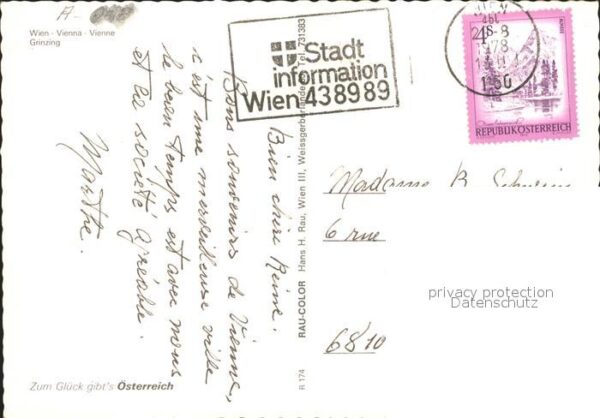 A-
Wien - Vienna - Vienne
Grinzing
Stadt
information
Wien 43 89 89
WIEN
1150
REPUBLIK ÖSTERREICH
Bien chère Reine.
Bons souvenirs de Vienne,
c'est une merveilleuse ville
le beau temps est avec nous
et la société agréable.
Marthe.
RAU-COLOR Hans H. Rau, Wien III, Weissgerberlände Tel. 731383
R 174
Madame R.
6 rue
6810
privacy protection
Datenschutz
Zum Glück gibt's Österreich